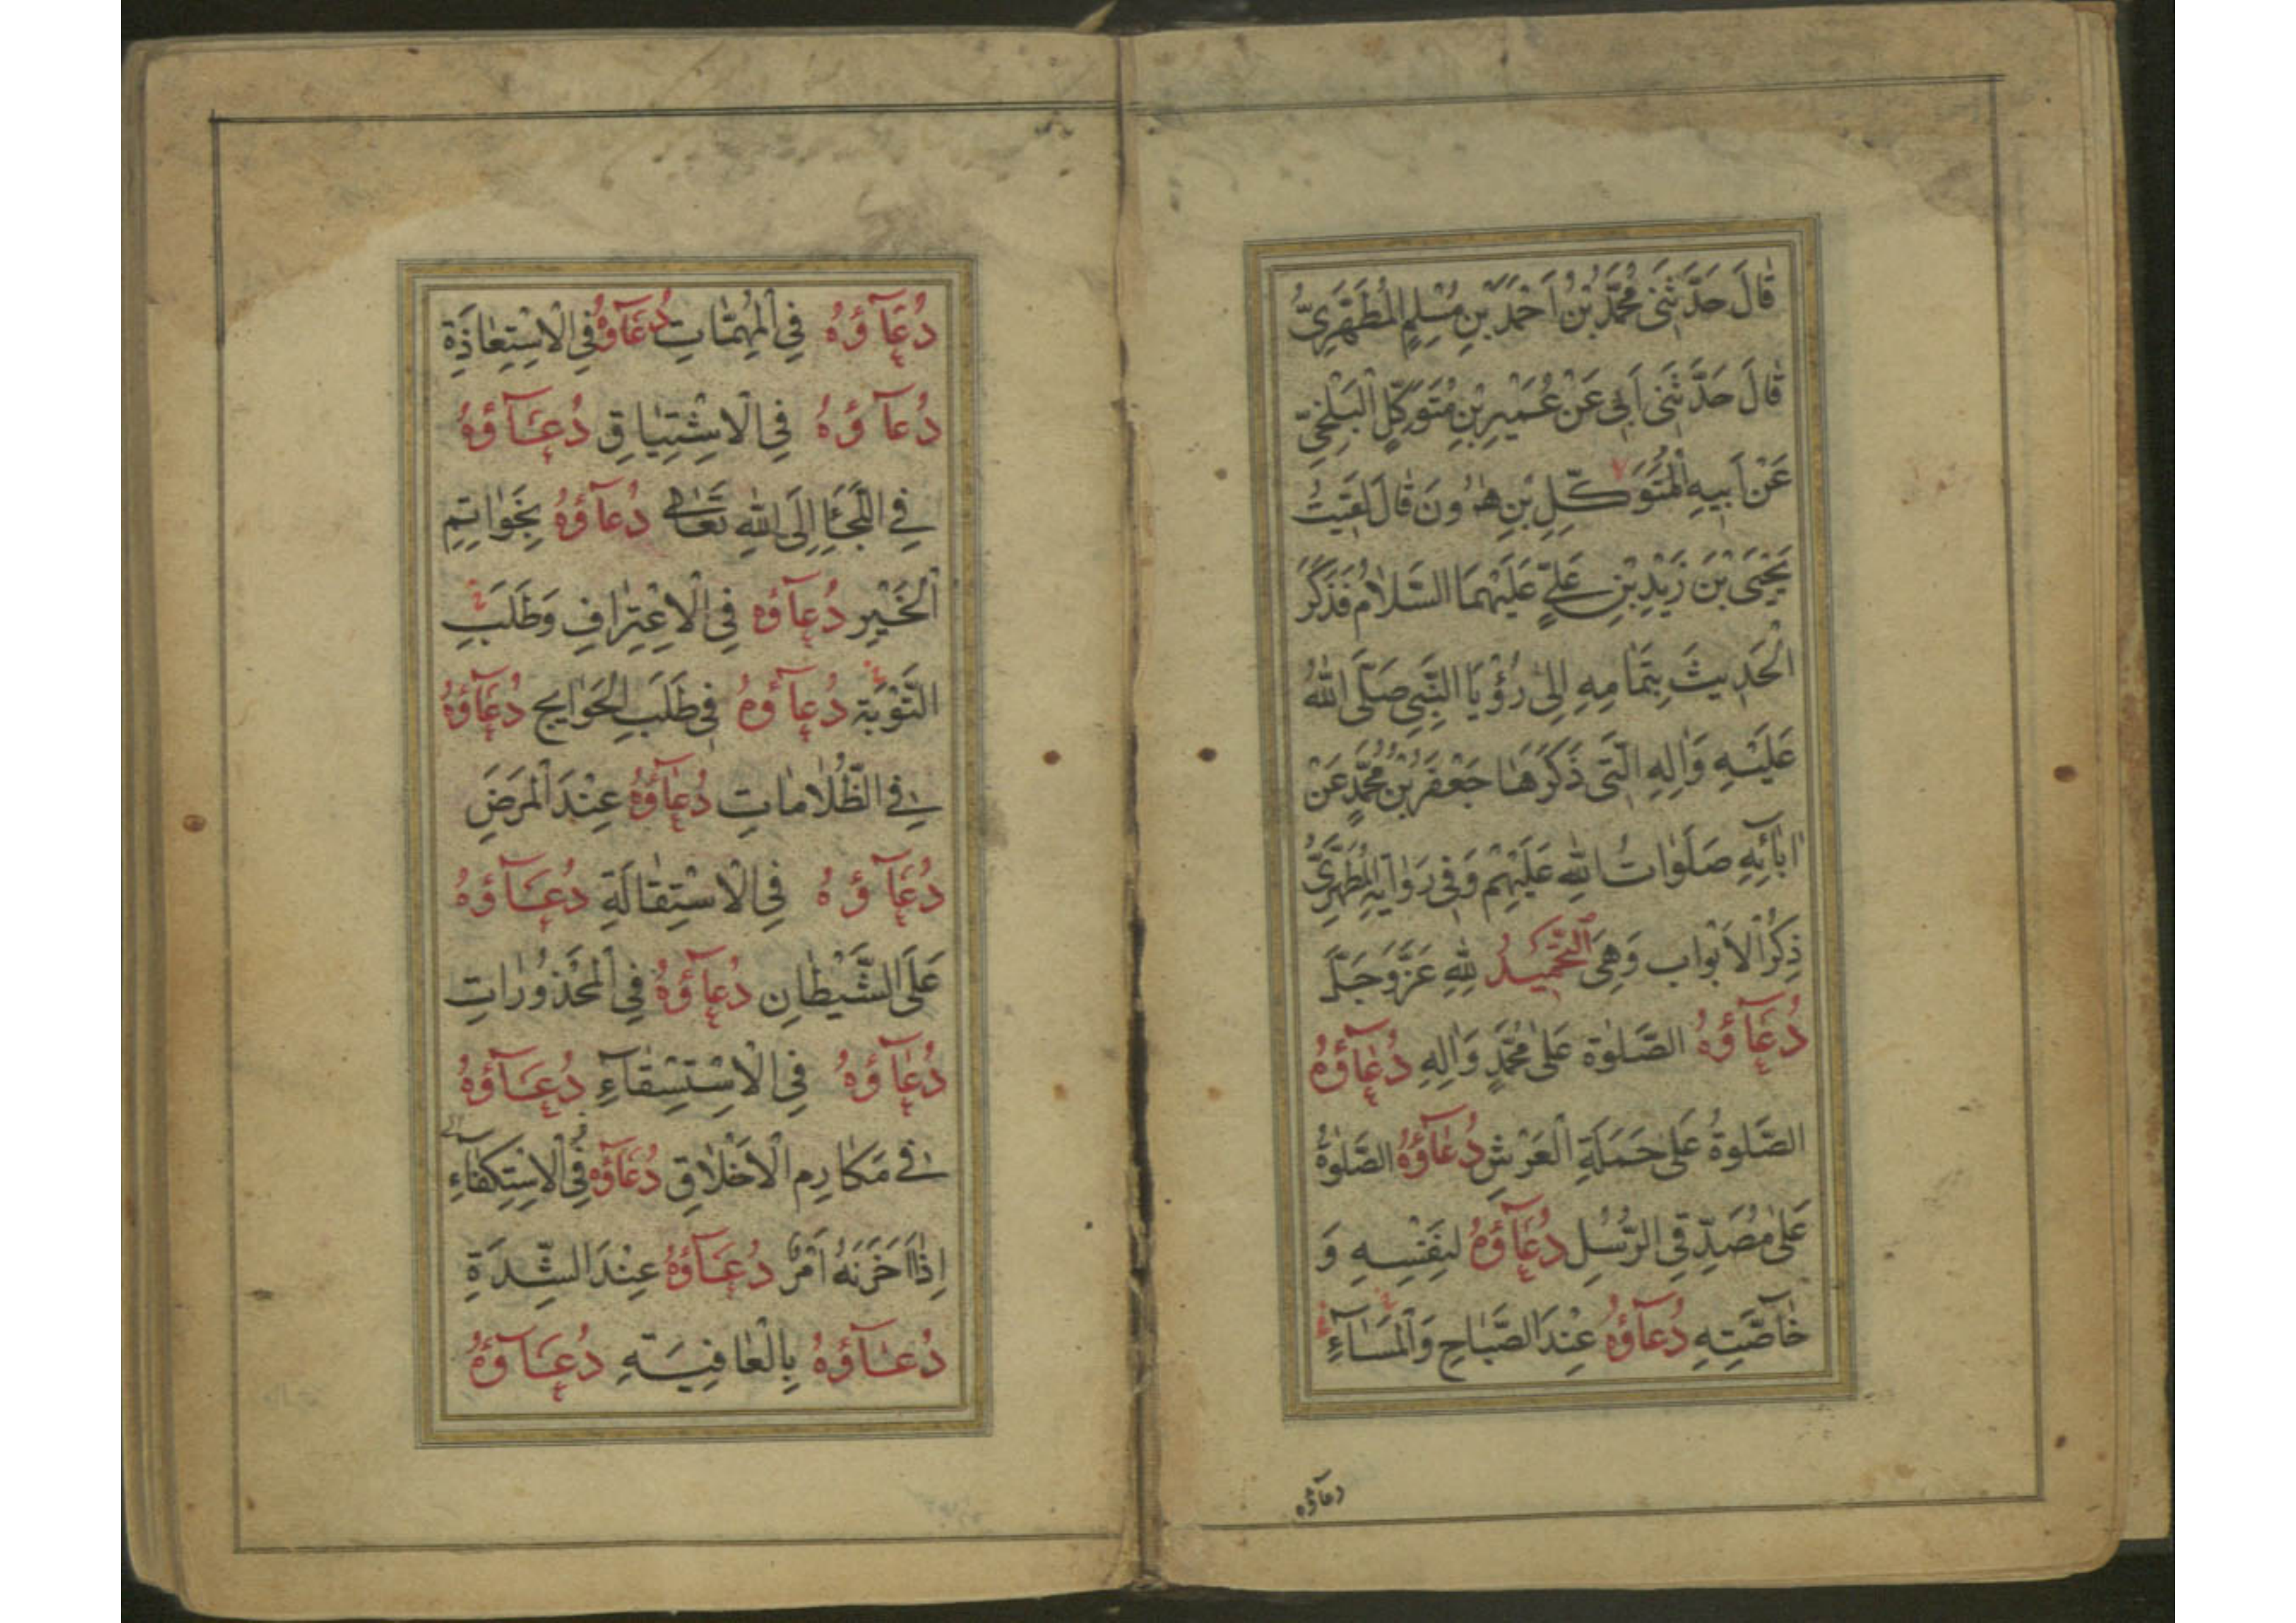 قَالَ حَدَّثَنِى مُحَمَّدُ بْنُ اَحْمَدَ بْنِ مُسْلِمٍ الْمُطَهَّرِىُّ
قَالَ حَدَّثَنِى اَبِى عَنْ عُمَيْرِ بْنِ مُتَوَكِّلٍ الْبَلْخِىِّ
عَنْ اَبِيهِ الْمُتَوَكِّلِ بْنِ هٰرُونَ قَالَ لَقِيتُ
يَحْيَى بْنَ زَيْدِ بْنِ عَلِىٍّ عَلَيْهِمَا السَّلَامُ فَذَكَرَ
الْحَدِيثَ بِتَمَامِهِ اِلٰى رُؤْيَا النَّبِىِ صَلَّى اللهُ
عَلَيْهِ وَاٰلِهِ الَّتِى ذَكَرَهَا جَعْفَرُ بْنُ مُحَمَّدٍ عَنْ
اٰبَآئِهِ صَلَوَاتُ اللهِ عَلَيْهِمْ وَفِى رِوَايَةِ الْمُطَهَّرِىِّ
ذِكْرُ الْاَبْوَاب وَهِىَ التَّحْمِيدُ لِلّٰهِ عَزَّ وَجَلَّ
دُعَآؤُهُ الصَّلٰوة عَلٰى مُحَمَّدٍ وَاٰلِهِ دُعَآؤُهُ
الصَّلٰوةُ عَلٰى حَمَلَةِ الْعَرْشِ دُعَآؤُهُ الصَّلٰوةُ
عَلٰى مُصَدِّقِى الرُّسُلِ دُعَآؤُهُ لِنَفْسِهِ وَ
خَآصَّتِهِ دُعَآؤُهُ عِنْدَ الصَّبَاحِ وَالْمَسَآءِ
دعاؤه
دُعَآؤُهُ فِى الْمُهِمَّاتِ دُعَآؤُهُ فِى الْاِسْتِعَاذَةِ
دُعَآؤُهُ فِى الْاِشْتِيَاقِ دُعَآؤُهُ
فِى اللَّجَأِ اِلَى اللهِ تَعَالٰى دُعَآؤُهُ بِخَوَاتِمِ
الْخَيْرِ دُعَآؤُهُ فِى الْاِعْتِرَافِ وَطَلَبِ
التَّوْبَةِ دُعَآؤُهُ فِى طَلَبِ الْحَوَايجِ دُعَآؤُهُ
فِى الظُّلَامَاتِ دُعَآؤُهُ عِنْدَ الْمَرَضِ
دُعَآؤُهُ فِى الْاِسْتِقَالَةِ دُعَآؤُهُ
عَلَى الشَّيْطَانِ دُعَآؤُهُ فِى الْمَحْذُورَاتِ
دُعَآؤُهُ فِى الْاِسْتِسْقَآءِ دُعَآؤُهُ
فِى مَكَارِمِ الْاَخْلَاقِ دُعَآؤُهُ فِى الْاِسْتِكْفَآءِ
اِذَا اَحْزَنَهُ اَمْرٌ دُعَآؤُهُ عِنْدَ الشِّدَةِ
دُعَآؤُهُ بِالْعَافِيَةِ دُعَآؤُهُ